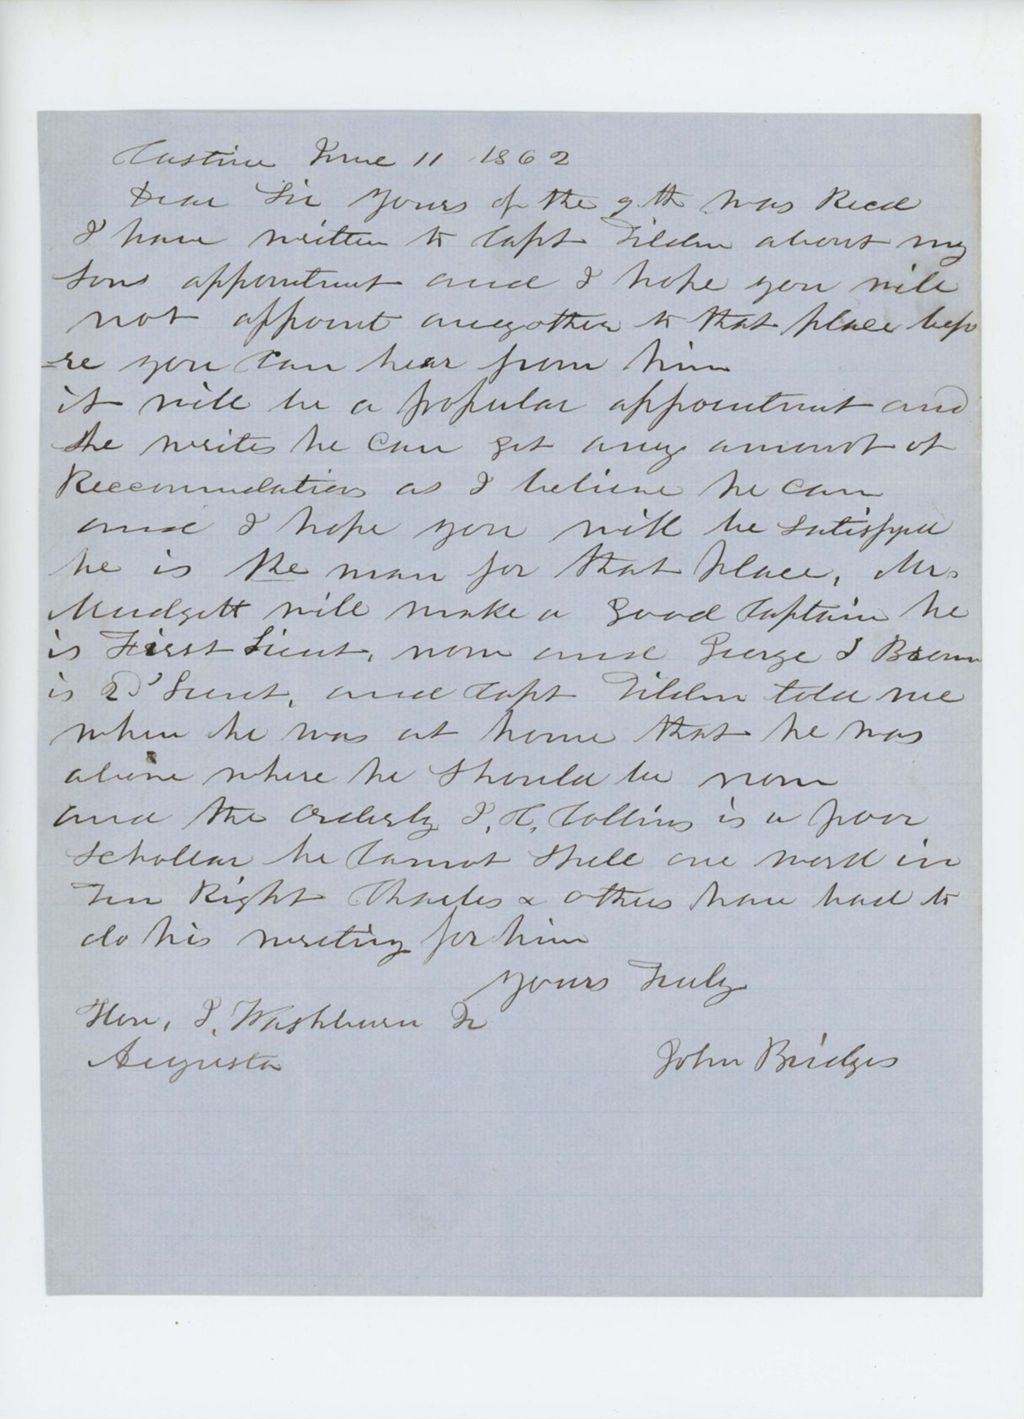 Castine June 11 1862
Dear Sir Yours of the 9th was Recd
I have written to Capt Tilden about my
Sons appointment and I hope you will
not appoint anyother to that place befo
=re you can hear from him
it will be a popular appointment and
he writes he can get any amount of
Reccomendations as I believe he can
and I hope you will be Satisfyed
he is the man for that place, Mr
Mudgett will make a good Captain he
is First Lieut, now and George I Brown
is 2d Lieut, and Capt Tilden told me
when he was at home that he was
above where he Should be now
and the Orderly J. H. Collins is a poor
Schollar he Cannot Spell one word in
Ten Right Charles & others have had to
do his writing for him
Yours Truly
Hon, I, Washburn Jr
Augusta
John Bridges